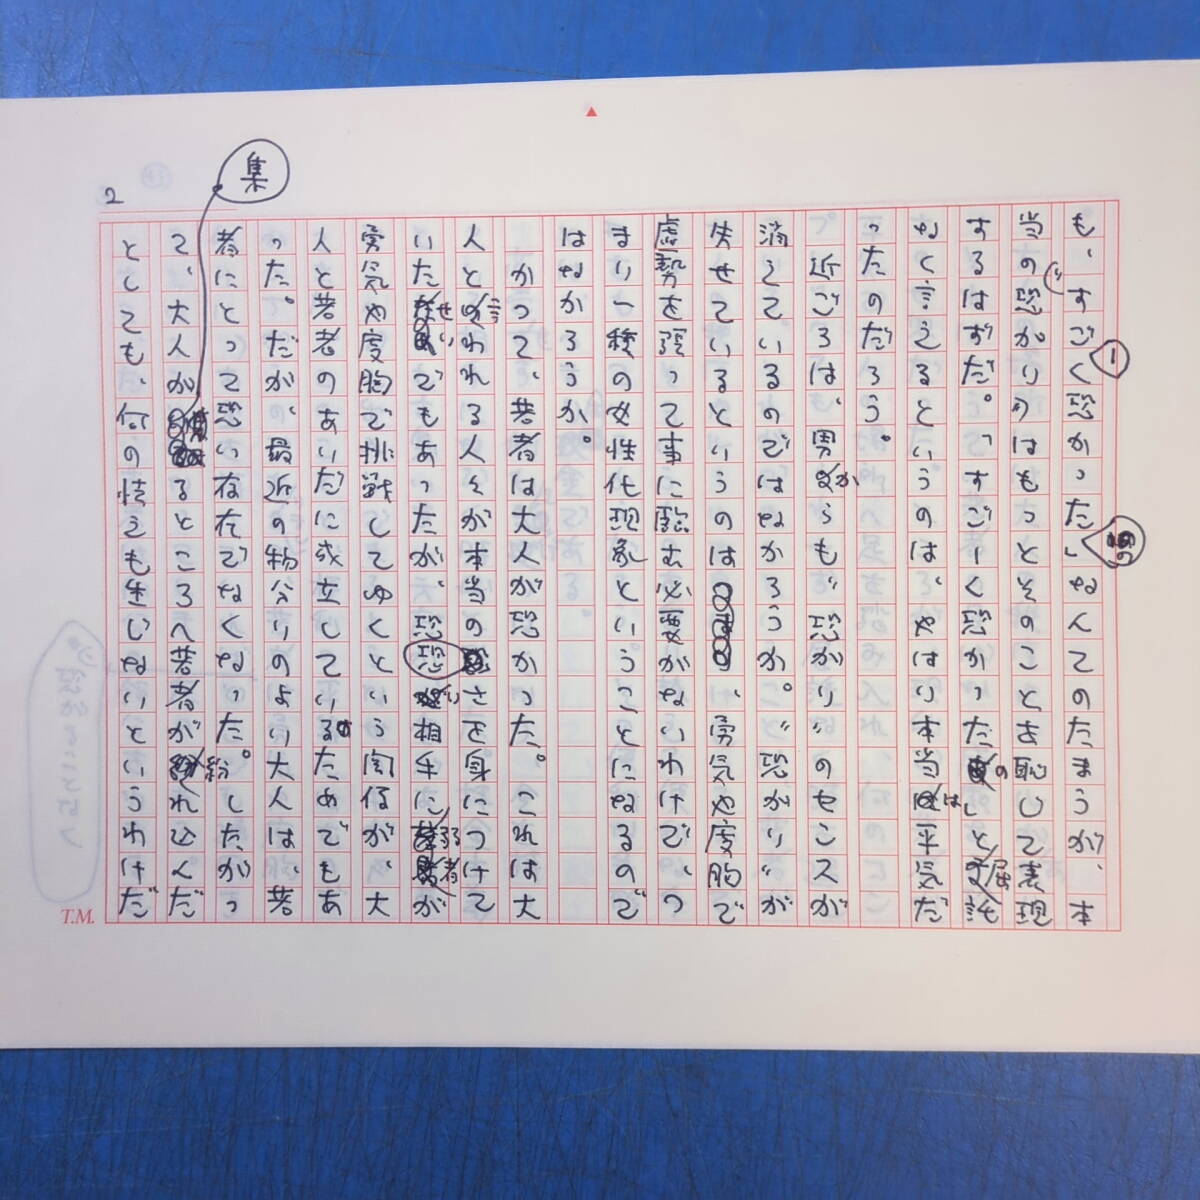 2
も、すごく恐かった」なんてのたまうが、本
ー
当の恐がりはもっとそのことを恥じて表現
するはずだ。「すごーく恐かったの」と屈託
なく言えるというのは、やはり本当は平気だ
ったのだろう。
近ごろは、男からも〝恐がり〟のセンスが
消えているのではなかろうか。〝恐がり〟が
失せているというのは、勇気や度胸で
虚勢を張って事に臨む必要がないわけで、つ
まり一種の女性化現象ということになるので
はなかろうか。
かつて、若者は大人が恐かった。これは大
人と言われる人々が本当の恐さを身につけて
いたせいでもあったが、恐い相手に弱者が
勇気や度胸で挑戦してゆくという関係が、大
人と若者のあいだに成立していたためでもあ
った。だが、最近の物分りのよい大人は、若
者にとって恐い存在でなくなった。したがっ
て、大人が集るところへ若者が紛れ込んだ
としても、何の怯えも生じないというわけだ
集
T.M.